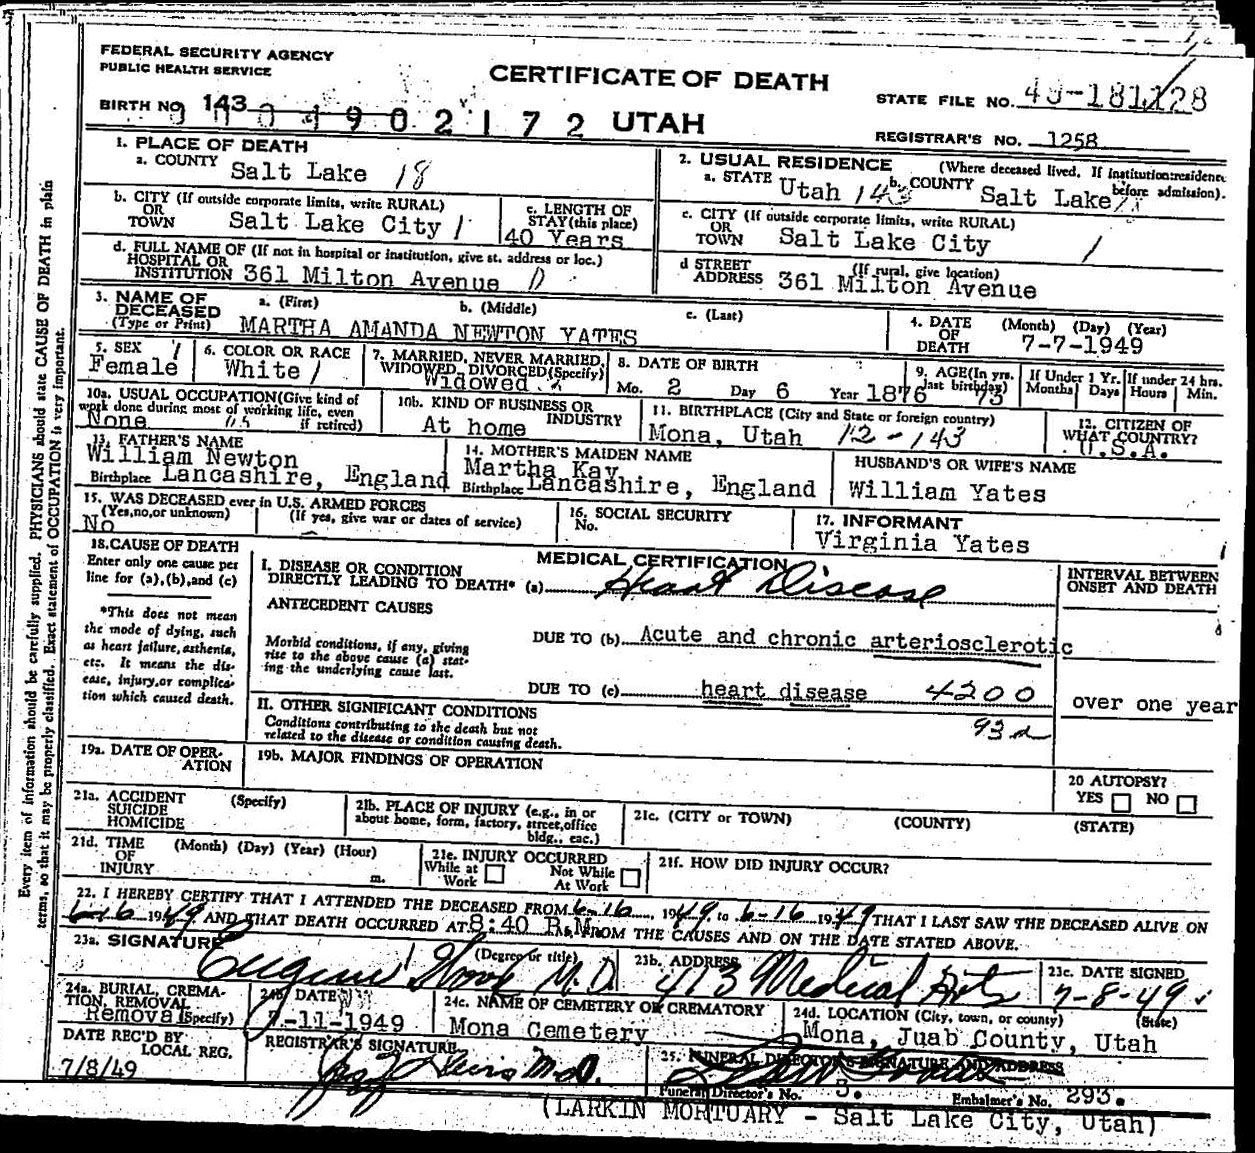 FEDERAL SECURITY AGENCY
PUBLIC HEALTH SERVICE
CERTIFICATE OF DEATH
STATE FILE NO.
BIRTH NO. 143
1902172 UTAH
REGISTRAR'S NO. 1258
1. PLACE OF DEATH
a. COUNTY Salt Lake 18
2. USUAL RESIDENCE (Where deceased lived. If institution:residence before admission).
a. STATE Utah 143 b. COUNTY Salt Lake
b. CITY (If outside corporate limits, write RURAL)
OR
TOWN Salt Lake City 1
c. LENGTH OF
STAY(this place)
40 Years
c. CITY (If outside corporate limits, write RURAL)
OR
TOWN Salt Lake City 1
d. FULL NAME OF (If not in hospital or institution, give st. address or loc.)
HOSPITAL OR
INSTITUTION 361 Milton Avenue 0
d STREET (If rural, give location)
ADDRESS 361 Milton Avenue
3. NAME OF
DECEASED
(Type or Print)
a. (First) b. (Middle) c. (Last)
MARTHA AMANDA NEWTON YATES
4. DATE
OF
DEATH
(Month) (Day) (Year)
7-7-1949
5. SEX 1
Female
6. COLOR OR RACE
White 1
7. MARRIED, NEVER MARRIED,
WIDOWED, DIVORCED(Specify)
Widowed
8. DATE OF BIRTH
Mo. 2 Day 6 Year 1876
9. AGE(In yrs.
last birthday)
73
If Under 1 Yr.
Months Days
If under 24 hrs.
Hours Min.
10a. USUAL OCCUPATION(Give kind of
work done during most of working life, even
if retired)
None
10b. KIND OF BUSINESS OR
INDUSTRY
At home
11. BIRTHPLACE (City and State or foreign country)
Mona, Utah 12-143
12. CITIZEN OF
WHAT COUNTRY?
U.S.A.
13. FATHER'S NAME
William Newton
Birthplace Lancashire, England
14. MOTHER'S MAIDEN NAME
Martha Kay
Birthplace Lancashire, England
HUSBAND'S OR WIFE'S NAME
William Yates
15. WAS DECEASED ever in U.S. ARMED FORCES
(Yes,no,or unknown) (If yes, give war or dates of service)
No
16. SOCIAL SECURITY
No.
17. INFORMANT
Virginia Yates
18.CAUSE OF DEATH
Enter only one cause per
line for (a),(b),and (c)
*This does not mean
the mode of dying, such
as heart failure, asthenia,
etc. It means the dis-
ease, injury,or complica-
tion which caused death.
MEDICAL CERTIFICATION
I. DISEASE OR CONDITION
DIRECTLY LEADING TO DEATH* (a) Heart Disease
ANTECEDENT CAUSES
Morbid conditions, if any, giving
rise to the above cause (a) stat-
ing the underlying cause last.
DUE TO (b) Acute and chronic arteriosclerotic
DUE TO (c) heart disease 4200
II. OTHER SIGNIFICANT CONDITIONS
Conditions contributing to the death but not
related to the disease or condition causing death.
93d
INTERVAL BETWEEN
ONSET AND DEATH
over one year
19a. DATE OF OPER-
ATION
19b. MAJOR FINDINGS OF OPERATION
20 AUTOPSY?
YES NO
21a. ACCIDENT
SUICIDE
HOMICIDE
(Specify)
21b. PLACE OF INJURY (e.g., in or
about home, form, factory, street,office
bldg., eac.)
21c. (CITY or TOWN) (COUNTY) (STATE)
21d. TIME
OF
INJURY
(Month) (Day) (Year) (Hour)
m.
21e. INJURY OCCURRED
While at
Work
Not While
At Work
21f. HOW DID INJURY OCCUR?
22. I HEREBY CERTIFY THAT I ATTENDED THE DECEASED FROM 6-16, 1949 to 6-16 1949 THAT I LAST SAW THE DECEASED ALIVE ON
6-16 1949 AND THAT DEATH OCCURRED AT 8:40 P.M. FROM THE CAUSES AND ON THE DATE STATED ABOVE.
23a. SIGNATURE (Degree or title)
Eugene Wood M.D.
23b. ADDRESS
413 Medical Arts
23c. DATE SIGNED
7-8-49
24a. BURIAL, CREMA-
TION, REMOVAL
(Specify)
Removal
24b DATE
7-11-1949
24c. NAME OF CEMETERY OR CREMATORY
Mona Cemetery
24d. LOCATION (City, town, or county) (State)
Mona, Juab County, Utah
DATE REC'D BY
LOCAL REG.
7/8/49
REGISTRAR'S SIGNATURE
M.D.
25. FUNERAL DIRECTOR'S SIGNATURE AND ADDRESS
Funeral Director's No. 3. Embalmer's No. 293.
(LARKIN MORTUARY - Salt Lake City, Utah)
Every item of information should be carefully supplied. PHYSICIANS should state CAUSE OF DEATH in plain
terms, so that it may be properly classified. Exact statement of OCCUPATION is very important.